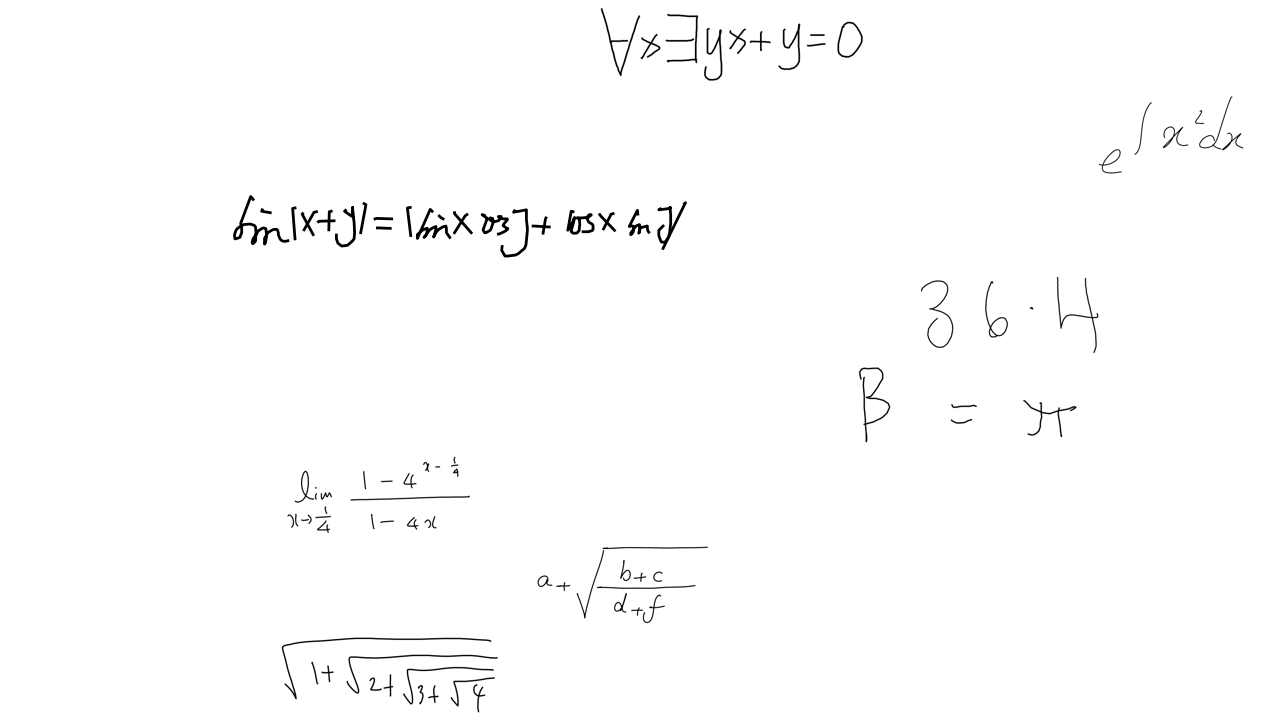 ∀x∃yx+y=0
e^{∫x^2dx}
sin|x+y|=|sinx cosy|+cosx siny
36·4
β = π
lim_{x→1/4} (1-4^{x-1/4})/(1-4x)
a+√((b+c)/(d+f))
√(1+√(2+√(3+√4)))